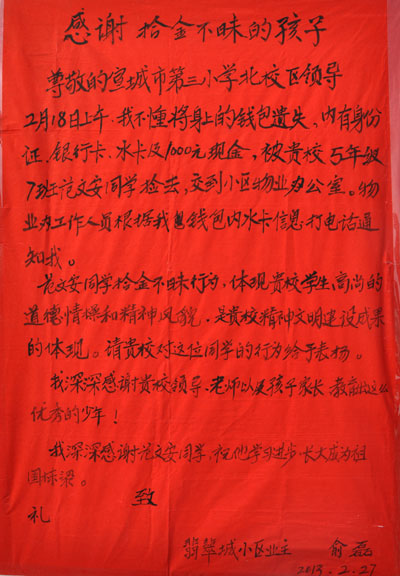 感谢拾金不昧的孩子
尊敬的宣城市第三小学北校区领导
2月18日上午,我不慬将身上的钱包遗失,内有身份
证、银行卡、水卡及1000元现金,被贵校5年级
7班范文安同学捡去,交到小区物业办公室。物
业办工作人员根据我钱包内水卡信息,打电话通
知我。
范文安同学拾金不昧行为,体现贵校学生高尚的
道德情操和精神风貌,是贵校精神文明建设成果
的体现。请贵校对这位同学的行为给于表扬。
我深深感谢贵校领导、老师以及孩子家长,教育出这么
优秀的少年!
我深深感谢范文安同学,祝他学习进步,长大成为祖
国栋梁。
致
礼
翡翠城小区业主 俞磊
2013.2.27